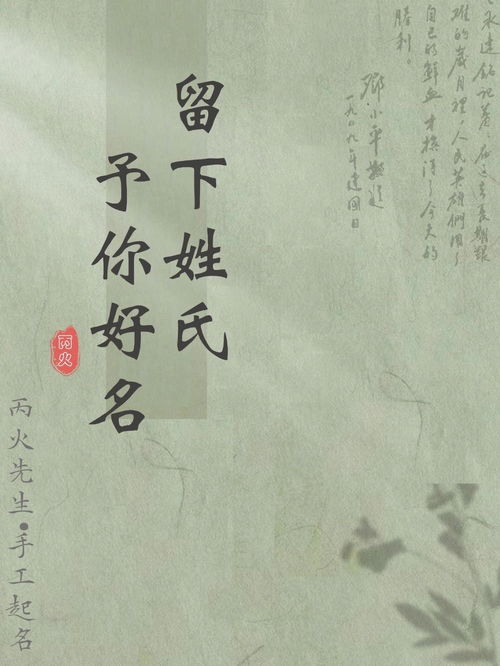 留下姓氏
予你好名
丙火
丙火先生•手工起名
永远铭记着在这长期艰
难的岁月裡人民英雄們用了
自己的鲜血才换得了今天的
勝利。
邓小平敬题
一九四九年建國日